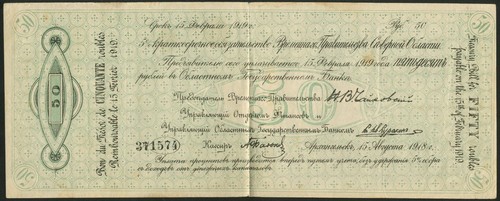 50
Срокъ 15 Февраля 1919 г.
Руб. 50
50
5% Краткосрочное обязательство Временнаго Правительства Северной Области
Предъявителю уплачивается 15 Февраля 1919 года пятьдесятъ
рублей въ Областномъ Государственномъ Банкѣ.
Председатель Временнаго Правительства
Н.В. Чайковскій
Управляющій Отдѣломъ Финансовъ и
Управляющій Областнымъ Государственнымъ Банкомъ
371574
Кассиръ
Архангельскъ, 15 Августа 1918 г.
Уплата процентовъ производится впередъ путемъ учета, безъ удержанія 5% сбора
съ доходовъ отъ денежныхъ капиталовъ.
50
Bon du Trésor de CINQUANTE roubles
Remboursable le 15 Février 1919.
50
Treasury Bill for FIFTY roubles
payable on the 15th of February 1919.
50
50